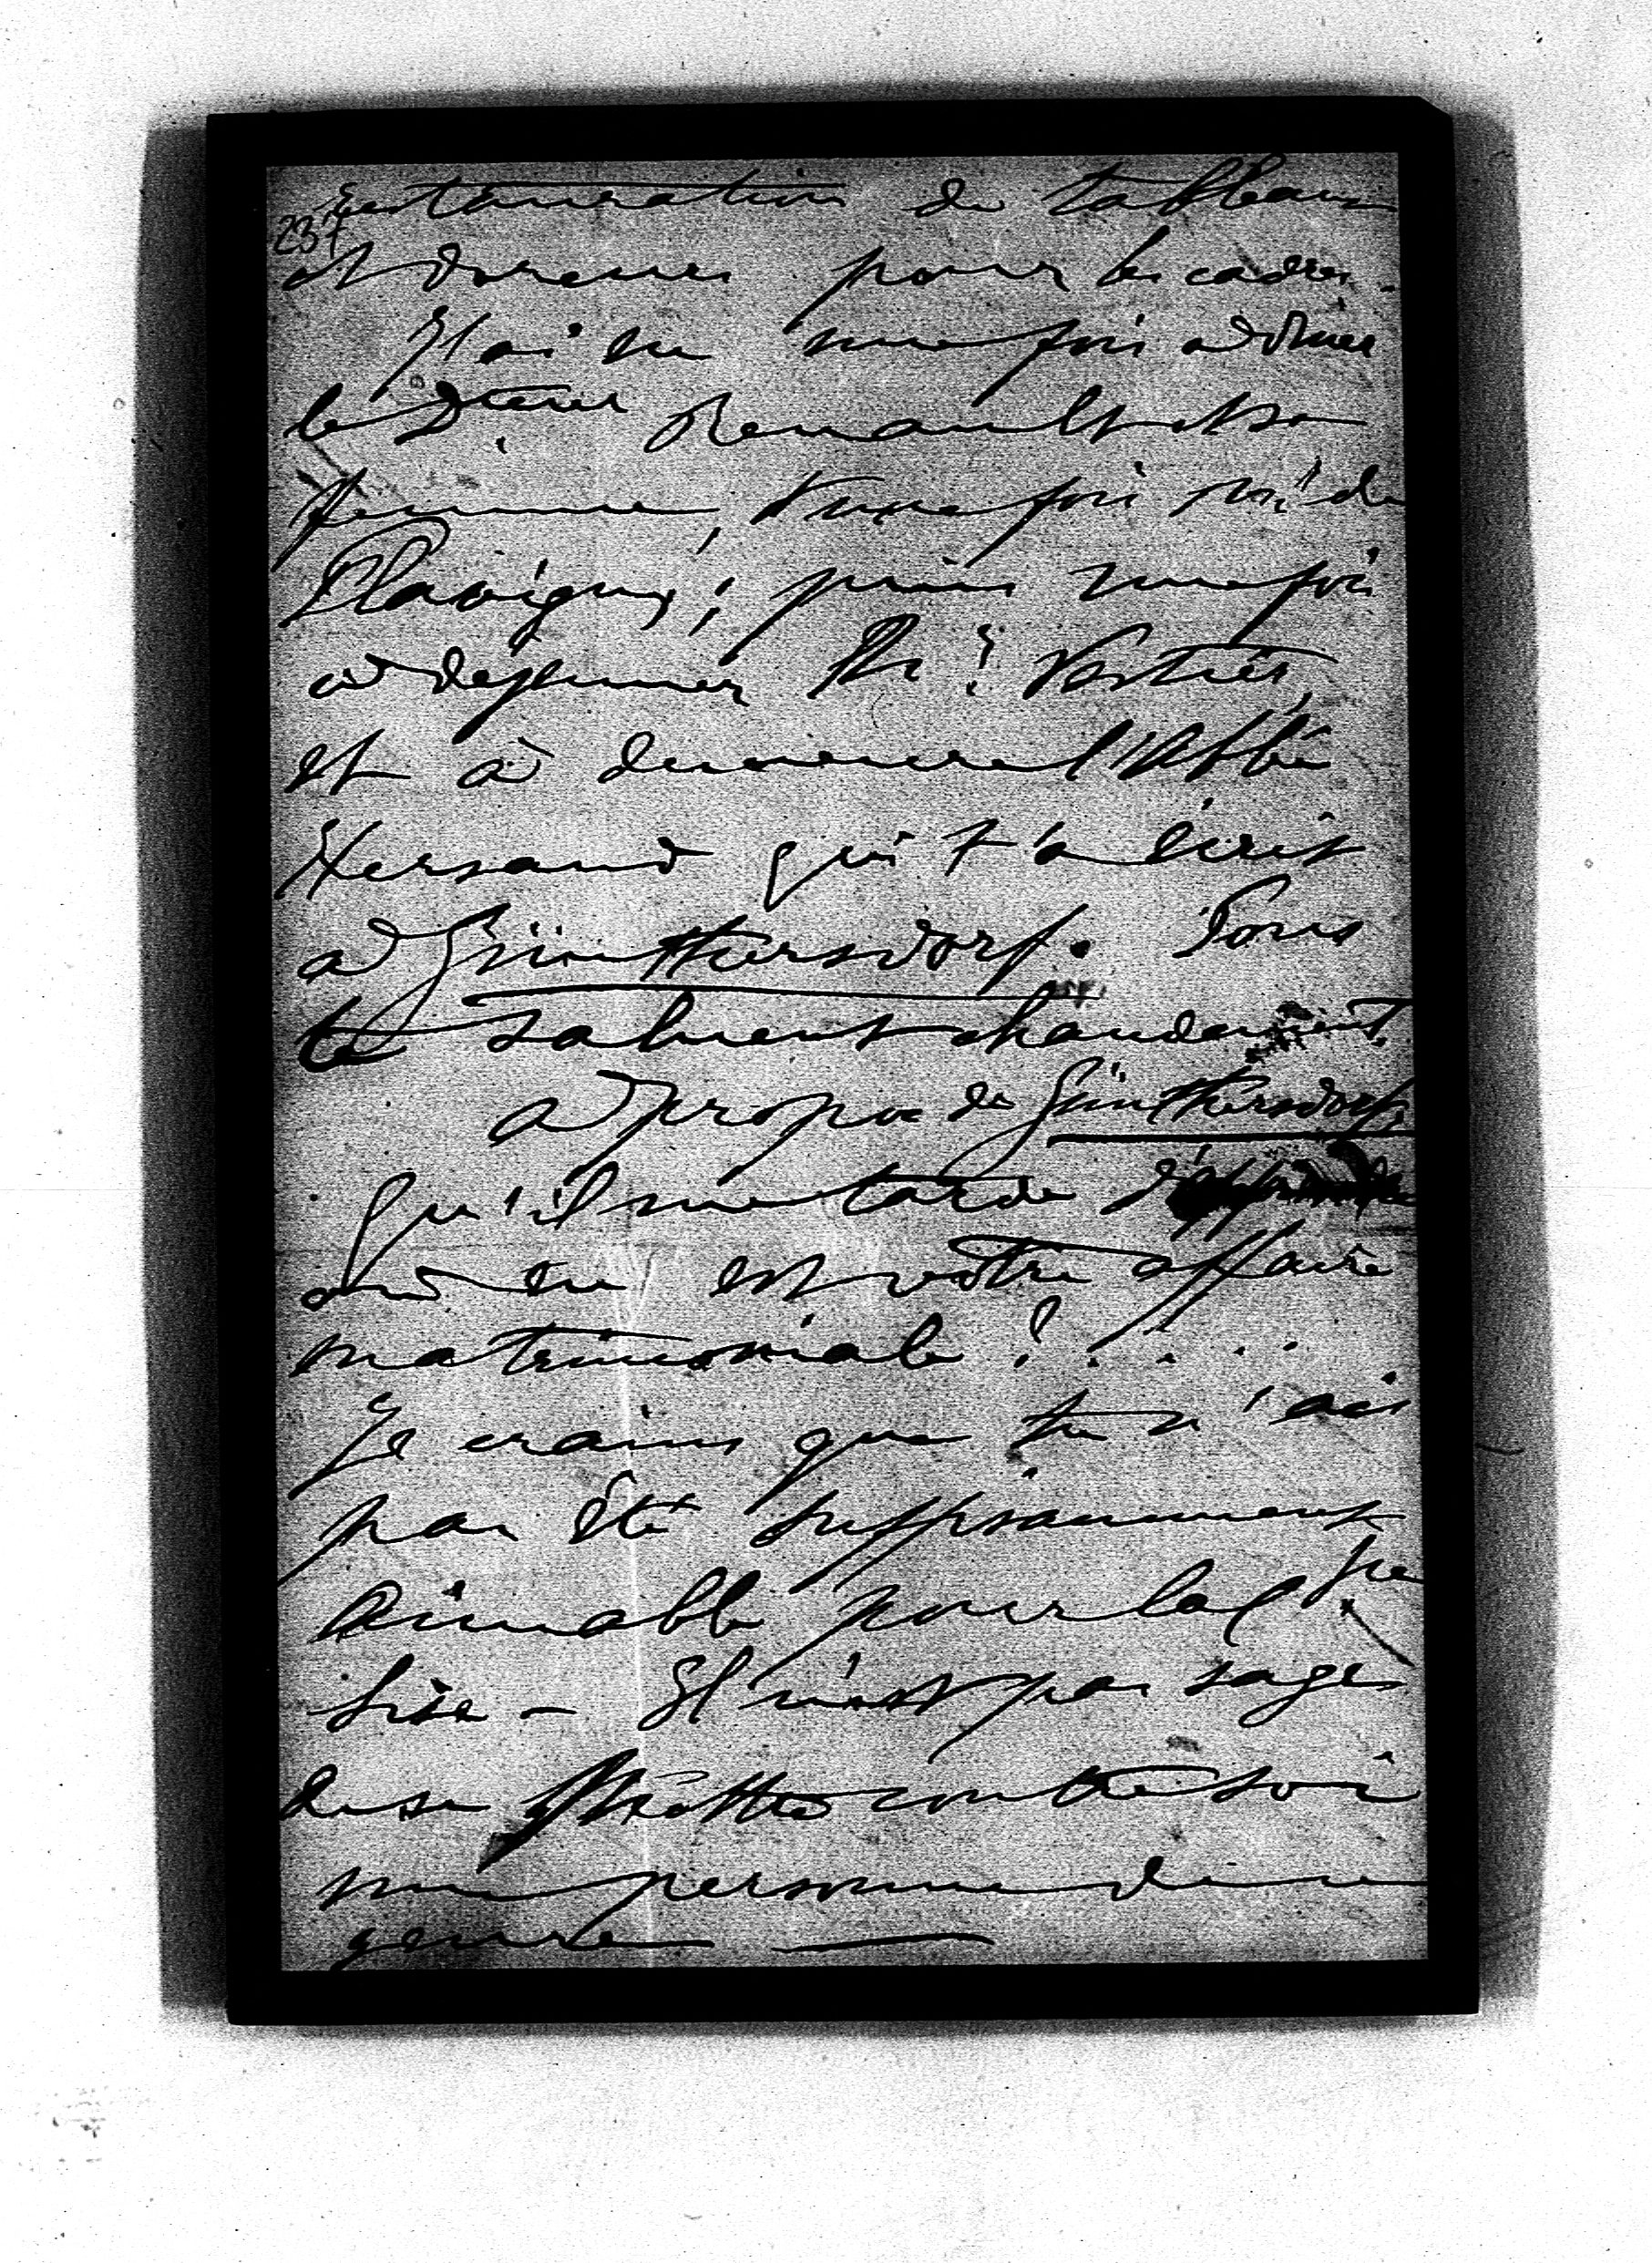 restauration de tableaux
237
et doreurs pour les cadres.
J'ai eu une fois à dîner
le Dteur Renault et sa
femme, & une fois Mr de
Flavigny; puis une fois
à déjeuner Mr
et à demeure l'Abbé
Hersand qui t'a écrit
à Günthersdorf. Tous
te saluent chaudement.
à propos de Günthersdorf,
qu'il me tarde d'apprendre
où en est votre affaire
matrimoniale! . . . .
Je crains que tu n'ais
pas été suffisamment
aimable pour la
 – Il n'est pas sage
de se mettre contre soi
une personne de ce
genre —